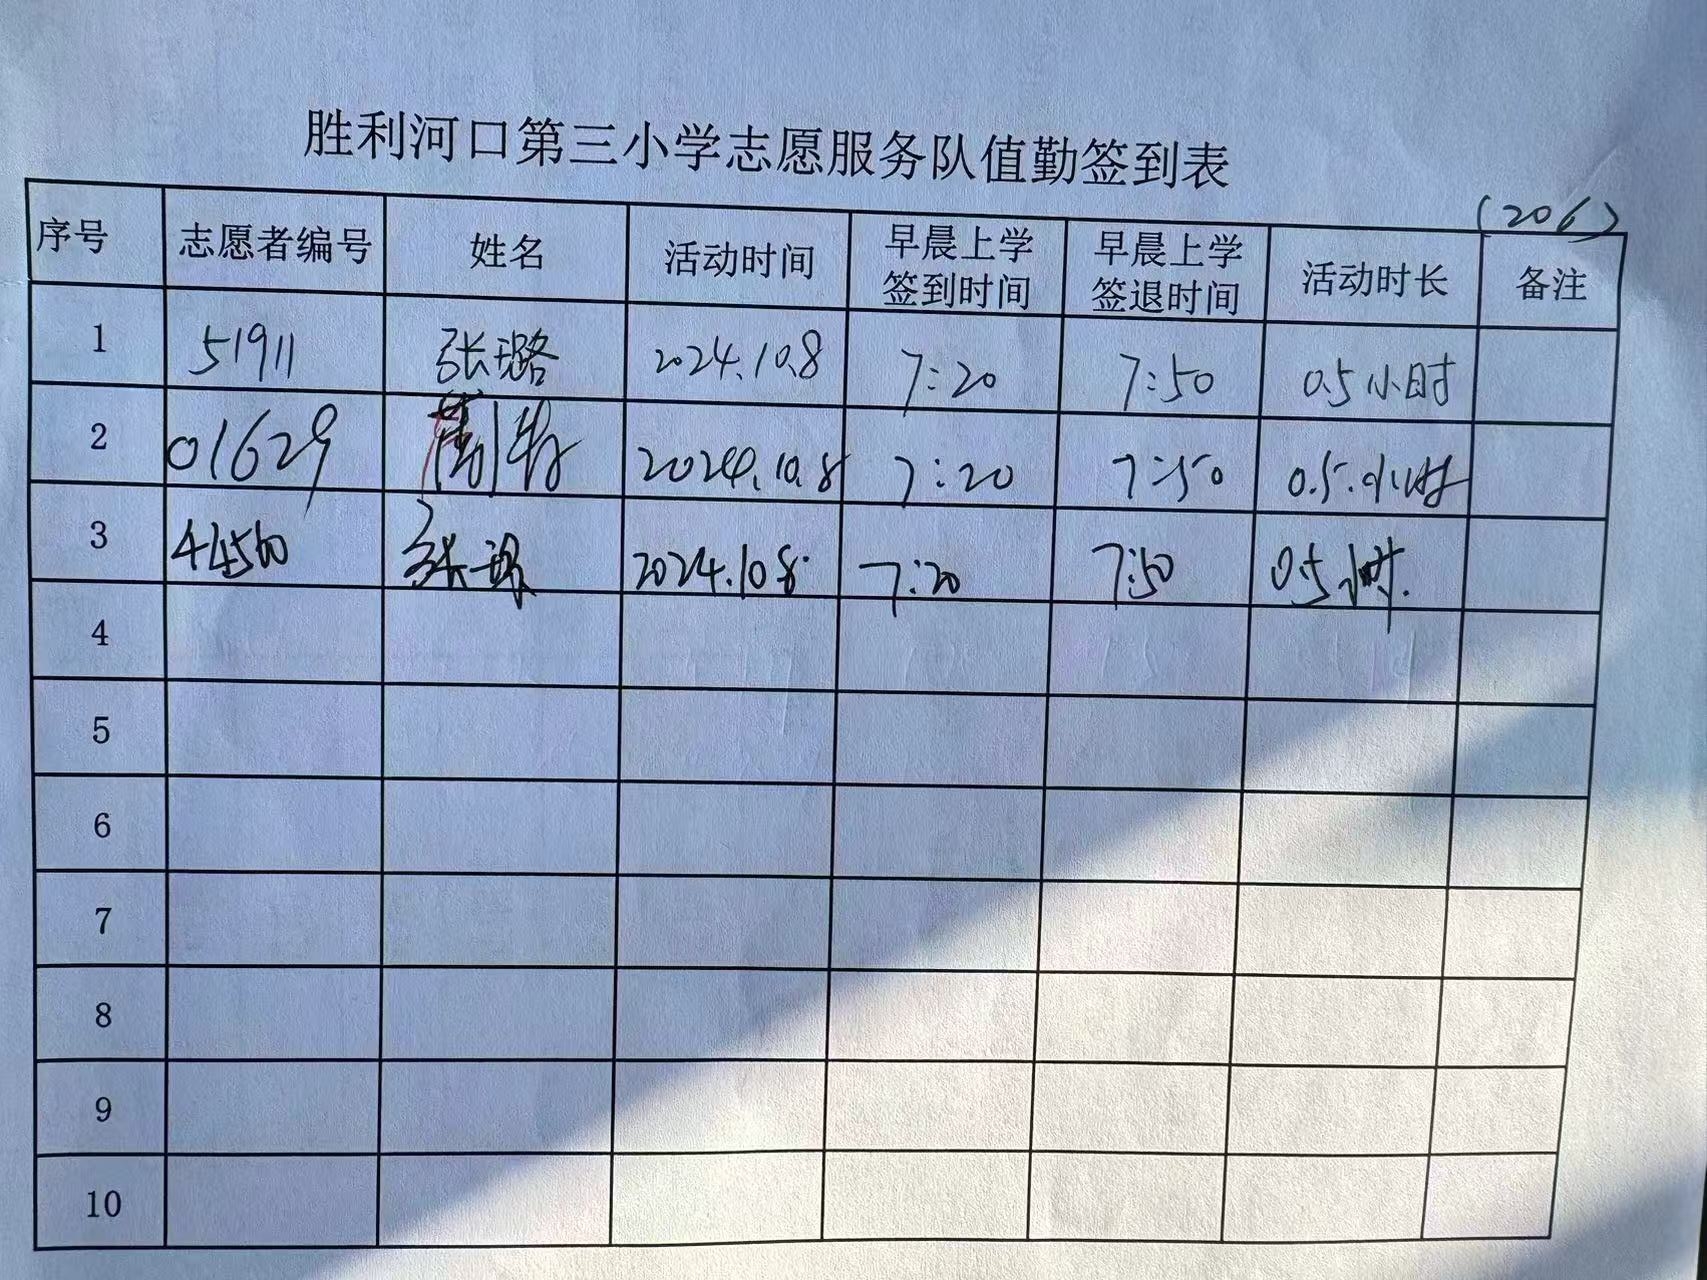 胜利河口第三小学志愿服务队值勤签到表
(206)
序号 志愿者编号 姓名 活动时间 早晨上学签到时间 早晨上学签退时间 活动时长 备注
1 51911 张璐 2024.10.8 7:20 7:50 0.5小时
2 01629 2024.10.8 7:20 7:50 0.5小时
3 44560 张 2024.10.8 7:20 7:50 0.5小时.
4
5
6
7
8
9
10